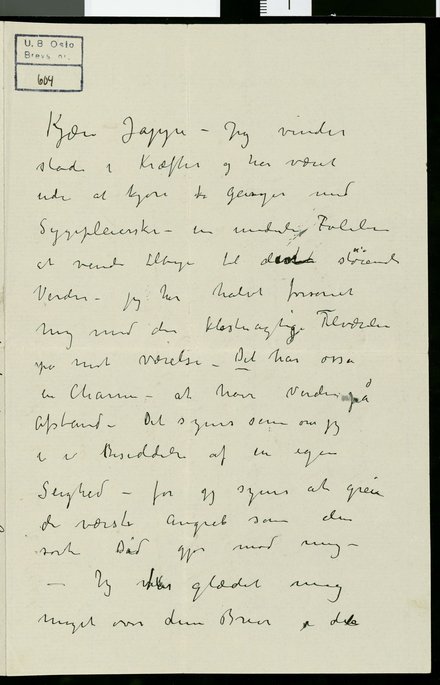 U.B. Oslo
Brevs. nr.
604
Kjære Jappe – Jeg vinder
stadi i Kræfter og har været
ude at kjøre to ganger med
Sygepleierske – en underlig Følelse
at vende tilbage til den støiende
Verden – Jeg har halvt forsonet
mig med den klosteragtige Tilværelse
på mit værelse – Det har osså
en Charme – at have Verden på
afstand – Det synes som om jeg
er i Besiddelse af en egen
Seighed – for jeg synes at greie
de værste Angreb som den
sorte Død gjør mod mig –
– Jeg har glædet mig
meget over dine Breve og de